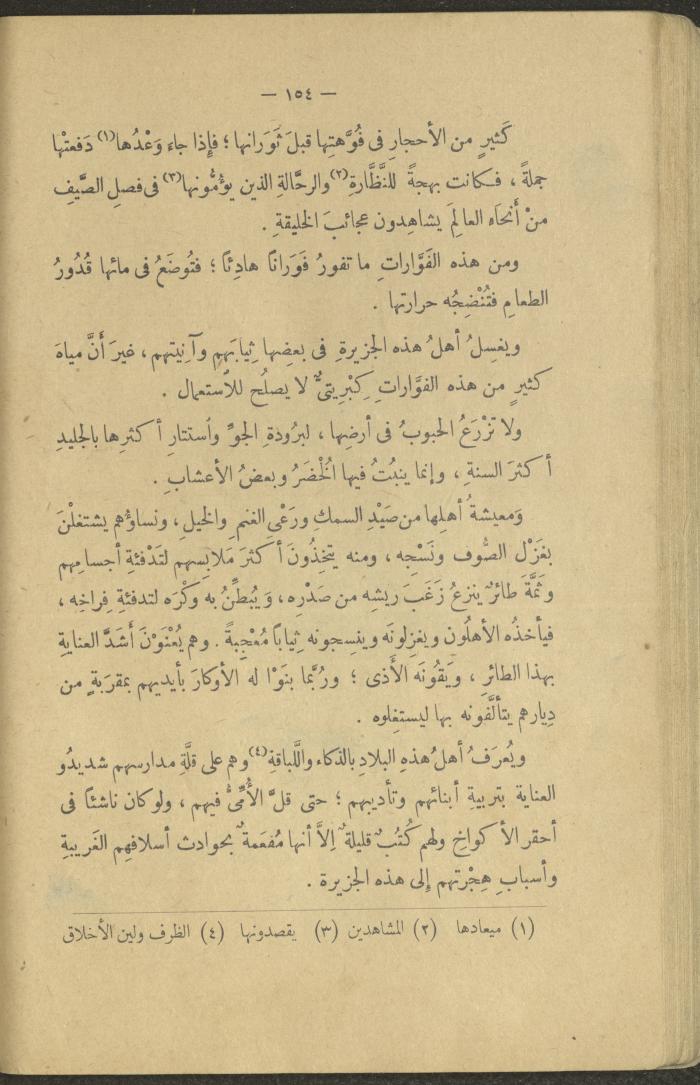 — ١٥٤ —
كَثيرٍ من الأحجارِ فى فُوَّهتِها قبلَ ثَوَرانها ؛ فإِذا جاء وَعْدُها(١) دَفعتْها
جملةً ، فكانت بهجةً للنَّظَّارةِ(٢) والرحَّالةِ الذين يؤُمُّونها(٣) فى فصلِ الصَّيفِ
منْ أَنحَاءِ العالِمَ يشاهِدون عجائبَ الخليقةِ .
ومن هذه الفَوَّاراتِ ما تفورُ فَوَرَاناً هادِئاً ؛ فتُوضَعُ فى مائها قُدُورُ
الطعامِ فتُنْضِجُه حرارتها .
ويغسِلُ أهلُ هذه الجزيرةِ فى بعضِها ثِيابَهم وآنِيتهم ، غيرَ أَنَّ مياهَ
كثيرٍ من هذه الفوَّاراتِ كِبْرِيتىٌّ لا يصلُح للاُستعمال .
ولا تزْرَعُ الحبوبُ فى أرضِها ، لبرُودةِ الجوِّ واُستتارِ أكثرِها بالجليدِ
أكثرَ السنةِ ، وإنما ينبُتُ فيها الُخْضَرُ وبعضُ الأعشابِ .
وَمعيشةُ أهلِها من صَيْدِ السمكِ ورَعْىِ الغنمِ والخيلِ ، ونساؤهم يشتغلْنَ
بغَزْل الصُّوف ونَسْجِه ، ومنه يتخِذُونَ أكثرَ مَلابِسهم لتَدْفئةِ أجسامِهم
وثَمَّةَ طائرٌ ينزعُ زَغَبَ ريشِه من صَدْرِه ، وَيُبطِّنُ به وكْرَه لتدفئةِ فِراخِه ،
فيأخذُه الأهلُون ويغزِلونَه وينسِجونه ثِياباً مُعْجِبةً . وهم يُعْنَوْنَ أَشَدَّ العنايةِ
بهذا الطائرِ ، وَيَقُونَه الأَذى ؛ ورُبَّما بنَوْا له الأوكارَ بأيديهم بمقرَبةٍ من
دِيارهم يتألَّفونه بها ليستغِلوه .
ويُعرَفُ أهلُ هذهِ البلادِ بالذكاء واللَّباقةِ(٤) وهم على قلَّةِ مدارسهم شديدُو
العناية بتربيةِ أبنائهم وتأديبهم ؛ حتى قلَّ الأُمِّىُّ فيهم ، ولوكان ناشئاً فى
أحقر الأكواخِ ولهم كُتُبٌ قليلةٌ إِلاَّ أنها مُفعَمةٌ بحوادث أسلافهِم الغَريبةِ
وأسبابِ هِجْرتهم إِلى هذه الجزيرة .
(١) ميعادها (٢) المشاهدين (٣) يقصدونها (٤) الظرف ولين الأخلاق